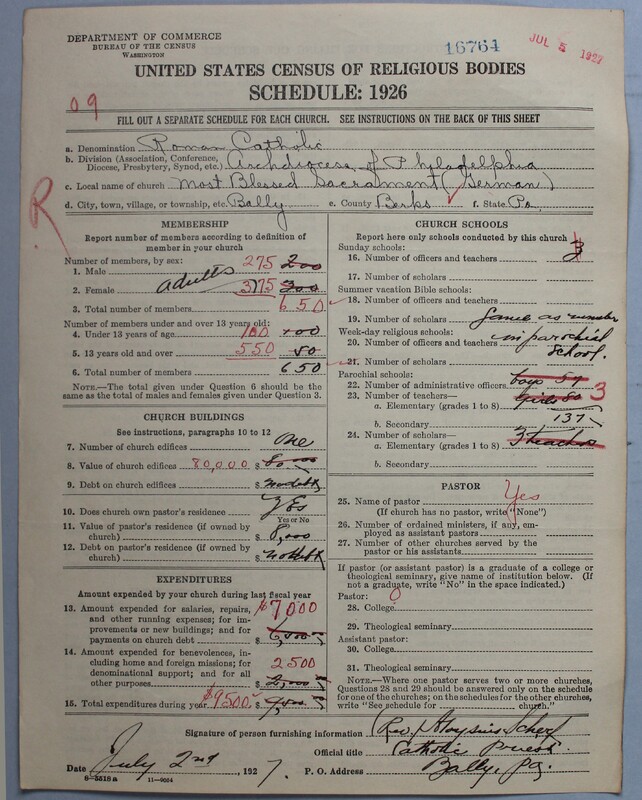 DEPARTMENT OF COMMERCE
BUREAU OF THE CENSUS
WASHINGTON
16764
JUL 5 1927
UNITED STATES CENSUS OF RELIGIOUS BODIES
SCHEDULE: 1926
09
FILL OUT A SEPARATE SCHEDULE FOR EACH CHURCH. SEE INSTRUCTIONS ON THE BACK OF THIS SHEET
a. Denomination Roman Catholic
b. Division (Association, Conference, Diocese, Presbytery, Synod, etc.) Archdiocese of Philadelphia
c. Local name of church Most Blessed Sacrament (German)
d. City, town, village, or township, etc. Bally e. County Berks f. State Pa.
R
MEMBERSHIP
Report number of members according to definition of
member in your church
Number of members, by sex:
1. Male 275 200
adults
2. Female 375 300
3. Total number of members 650
Number of members under and over 13 years old:
4. Under 13 years of age 100 100
5. 13 years old and over 550 50
6. Total number of members 650
NOTE.—The total given under Question 6 should be the
same as the total of males and females given under Question 3.
CHURCH BUILDINGS
See instructions, paragraphs 10 to 12
7. Number of church edifices One
8. Value of church edifices 80,000 $
9. Debt on church edifices $ no debt
10. Does church own pastor's residence? Yes
Yes or No
11. Value of pastor's residence (if owned by
church) $ 8,000
12. Debt on pastor's residence (if owned by
church) $ no debt
EXPENDITURES
Amount expended by your church during last fiscal year
13. Amount expended for salaries, repairs,
and other running expenses; for im-
provements or new buildings; and for
payments on church debt $ $7000
14. Amount expended for benevolences,
including home and foreign missions; for
denominational support; and for all
other purposes $ 2500 2,000
15. Total expenditures during year $9500 $
CHURCH SCHOOLS
Report here only schools conducted by this church
Sunday schools:
16. Number of officers and teachers 3
17. Number of scholars
Summer vacation Bible schools:
18. Number of officers and teachers
19. Number of scholars Same as number
Week-day religious schools:
20. Number of officers and teachers in parochial
school.
21. Number of scholars
Parochial schools:
22. Number of administrative officers boys 57
23. Number of teachers— girls 80 3
a. Elementary (grades 1 to 8)
137
b. Secondary
24. Number of scholars—
a. Elementary (grades 1 to 8) 3 teachers
b. Secondary
PASTOR
25. Name of pastor Yes
(If church has no pastor, write "None")
26. Number of ordained ministers, if any, em-
ployed as assistant pastors
27. Number of other churches served by the
pastor or his assistants
If pastor (or assistant pastor) is a graduate of a college or
theological seminary, give name of institution below. (If
not a graduate, write "No" in the space indicated.)
Pastor: 0
28. College
29. Theological seminary
Assistant pastor:
30. College
31. Theological seminary
NOTE.—Where one pastor serves two or more churches,
Questions 28 and 29 should be answered only on the schedule
for one of the churches; on the schedules for the other churches,
write "See schedule for church."
Signature of person furnishing information Rev. Aloysius Scherf
Official title Catholic Priest
Date July 2nd, 1927. P. O. Address Bally, Pa.
8-5518a 11-9064